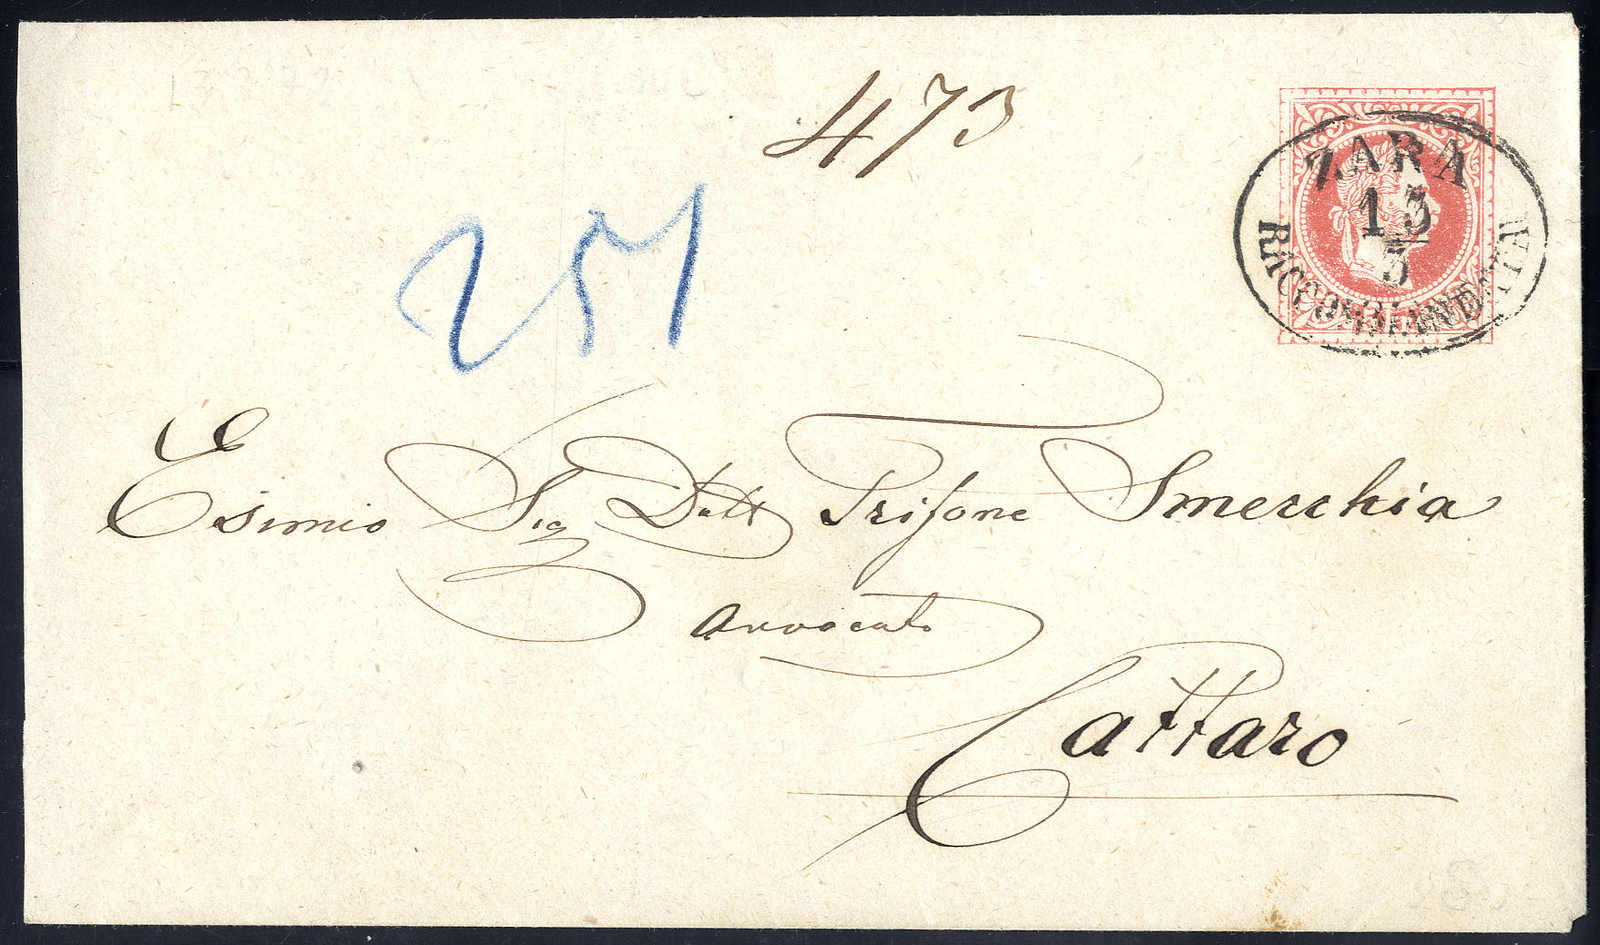 473
ZARA
13
3
RACCOMANDATA
251
Esimio Sig Dott Trifone Smerchia
Avvocato
Cattaro